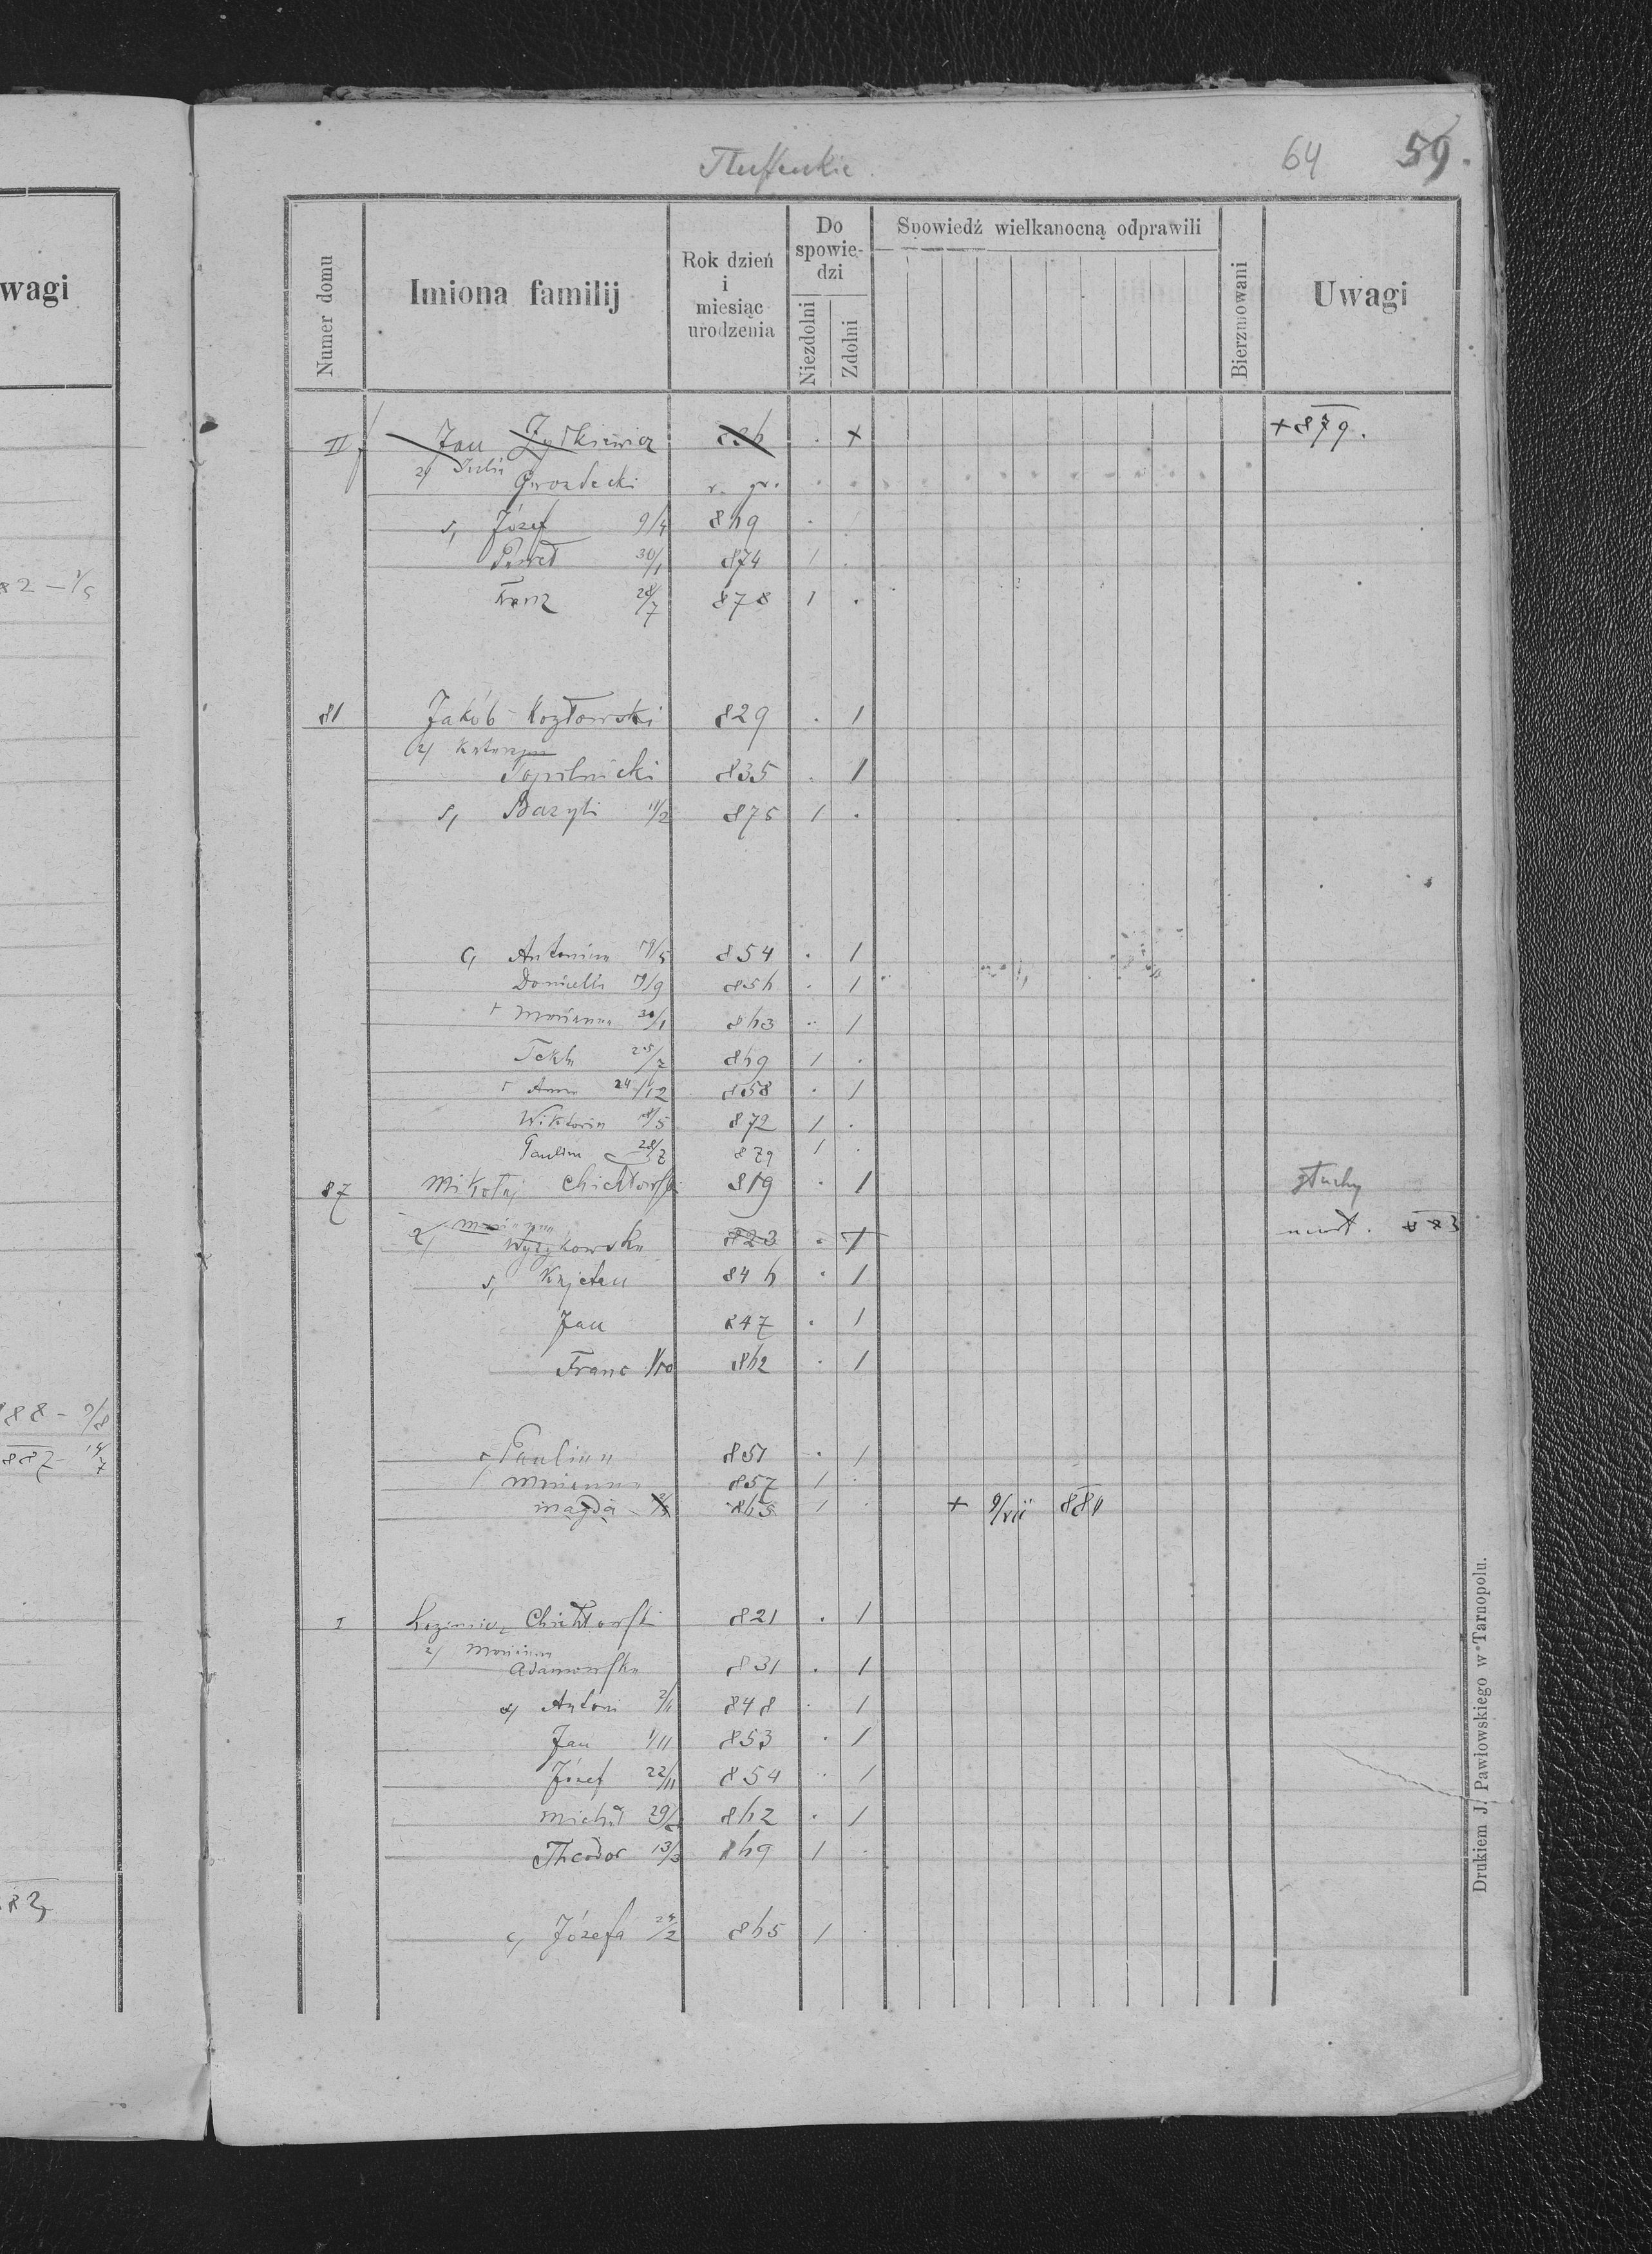 wagi
82 – 1/5
888 – 9/8
887 – 14/7
64 59.
Numer domu
Imiona familij
Rok dzień i miesiąc urodzenia
Do spowiedzi
Niezdolni
Zdolni
Spowiedź wielkanocną odprawili
Bierzmowani
Uwagi
II Jan Żydkiewicz . + + 879.
2/ Julia
Gwozdecki r. gr.
s, Józef 9/4 869 .
Paweł 30/1 874 1 .
Franz 28/7 878 1 .
81 Jakób Kozłowski 829 . 1
2/ Katarzyna
Topilnicki 835 . 1
s, Bazyli 11/2 875 1 .
c, Antonina 19/5 854 . 1
Domicella 19/9 856 . 1
+ Marianna 30/1 863 . 1
Tekla 25/7 869 1 .
+ Anna 24/12 858 . 1
Wiktoria 18/5 872 1 .
Paulina 28/7 879 1 .
87 Mikołaj Chichłowski 819 . 1 głuchy
2/ Marianna
Wyżykowska 823 . 1 umarł. 883
s, Kajetan 846 . 1
Jan 847 . 1
Franc 1/10 862 . 1
c Paulina 851 . 1
Marianna 857 1 .
Magda 865 1 . + 9/vii 884
I Kazimierz Chichłowski 821 . 1
2/ Marianna
Adamowska 831 . 1
s, Antoni 2/11 848 . 1
Jan 1/11 853 . 1
Józef 22/11 854 . 1
Michał 29/ 862 . 1
Theodor 13/3 869 1 .
c, Józefa 24/2 865 1 .
Drukiem J. Pawłowskiego w Tarnopolu.